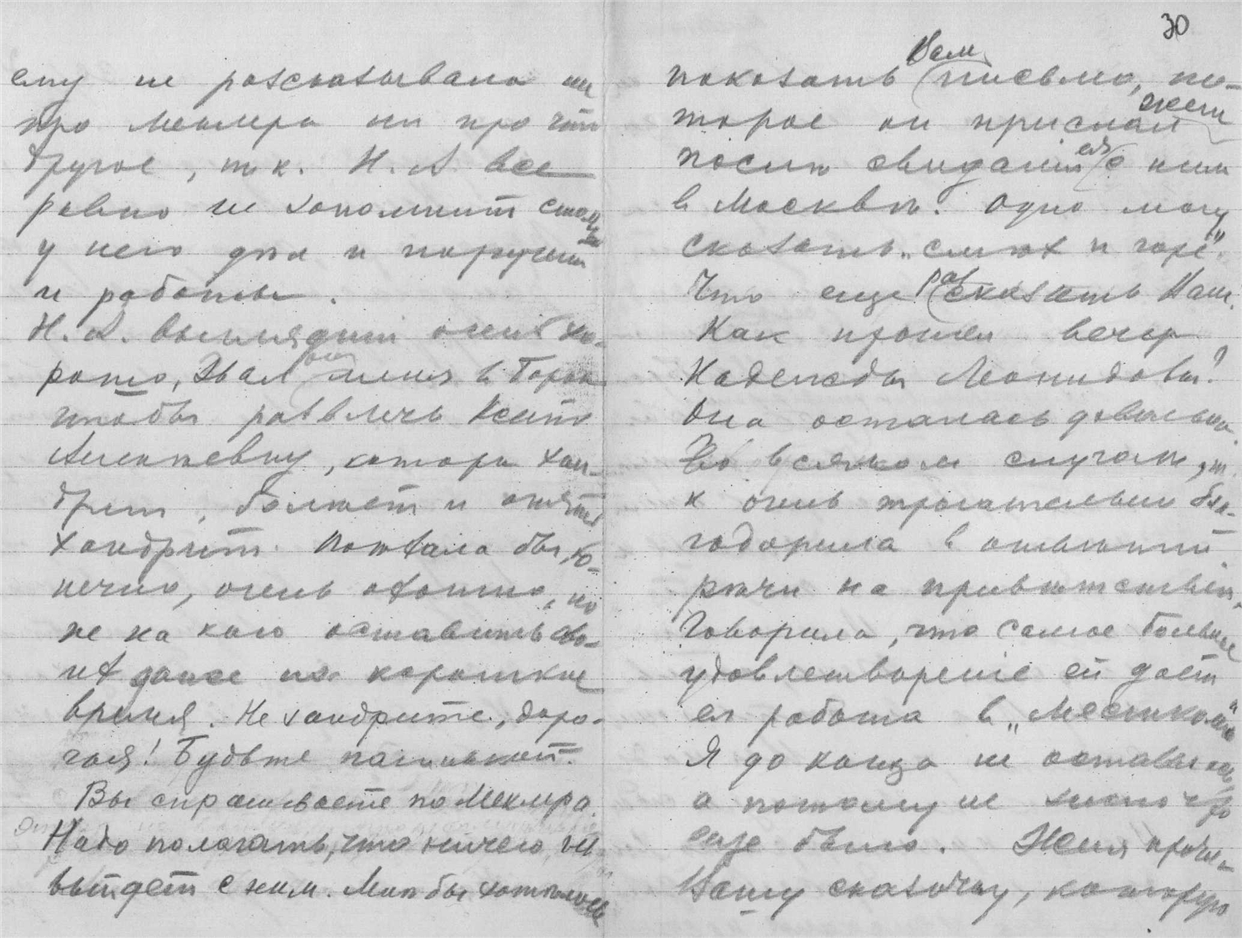 ему не разсказывала ни
про Меклера ни про что
другое, т. к. Н. А. все
равно не запомнит столь
у него дел и поручений
и работы.
Н. А. выглядит очень хо-
рошо, Звал он меня в Горки
чтобы развлечь Ксению
Алексеевну, которая хан-
дрит, болеет и опять
хандрит. Поехала бы, ко-
нечно, очень охотно, но
не на кого оставить сво-
их даже на короткое
время. Не хандрите, доро-
гая! Будьте паинькой.
Вы спрашиваете по Меклера.
Надо полагать, что ничего не
выйдет с ним. Мне бы хотелось
30
показать Вам письмо, ко-
торое он прислал Жени
после свидания ея с ним
в Москве. Одно могу
сказать „смех и горе".
Что еще рассказать Вам.
Как прошел вечер
Надежды Леонидовны?
Она осталась довольна.
Во всяком случае, т.
к очень трогательно бла-
годарила в ответной
речи на приветствия.
Говорила, что самое большее
удовлетворение ей дает
ея работа в „Месткоме"
Я до конца не оставалась
а потому не знаю что
еще было. Женя прочл.
Вашу сказочку, которую